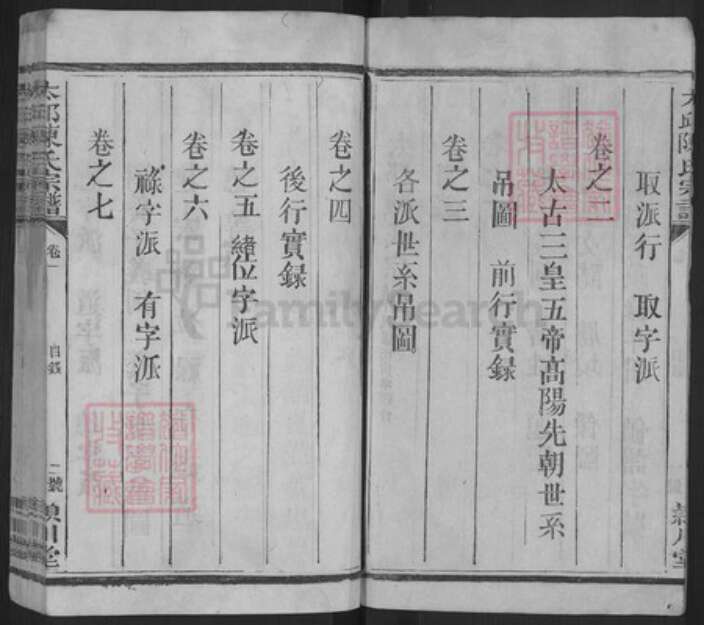 取派行　取字派
卷之二
太古三皇五帝高陽先朝世系
吊圖　前行實録
卷之三
各派世系吊圖
卷之四
後行實録
卷之五　緯位字派
卷之六
祿字派　有字派
卷之七
太邱陳氏宗譜
卷一
目録
二號
潁川堂
FamilySearch